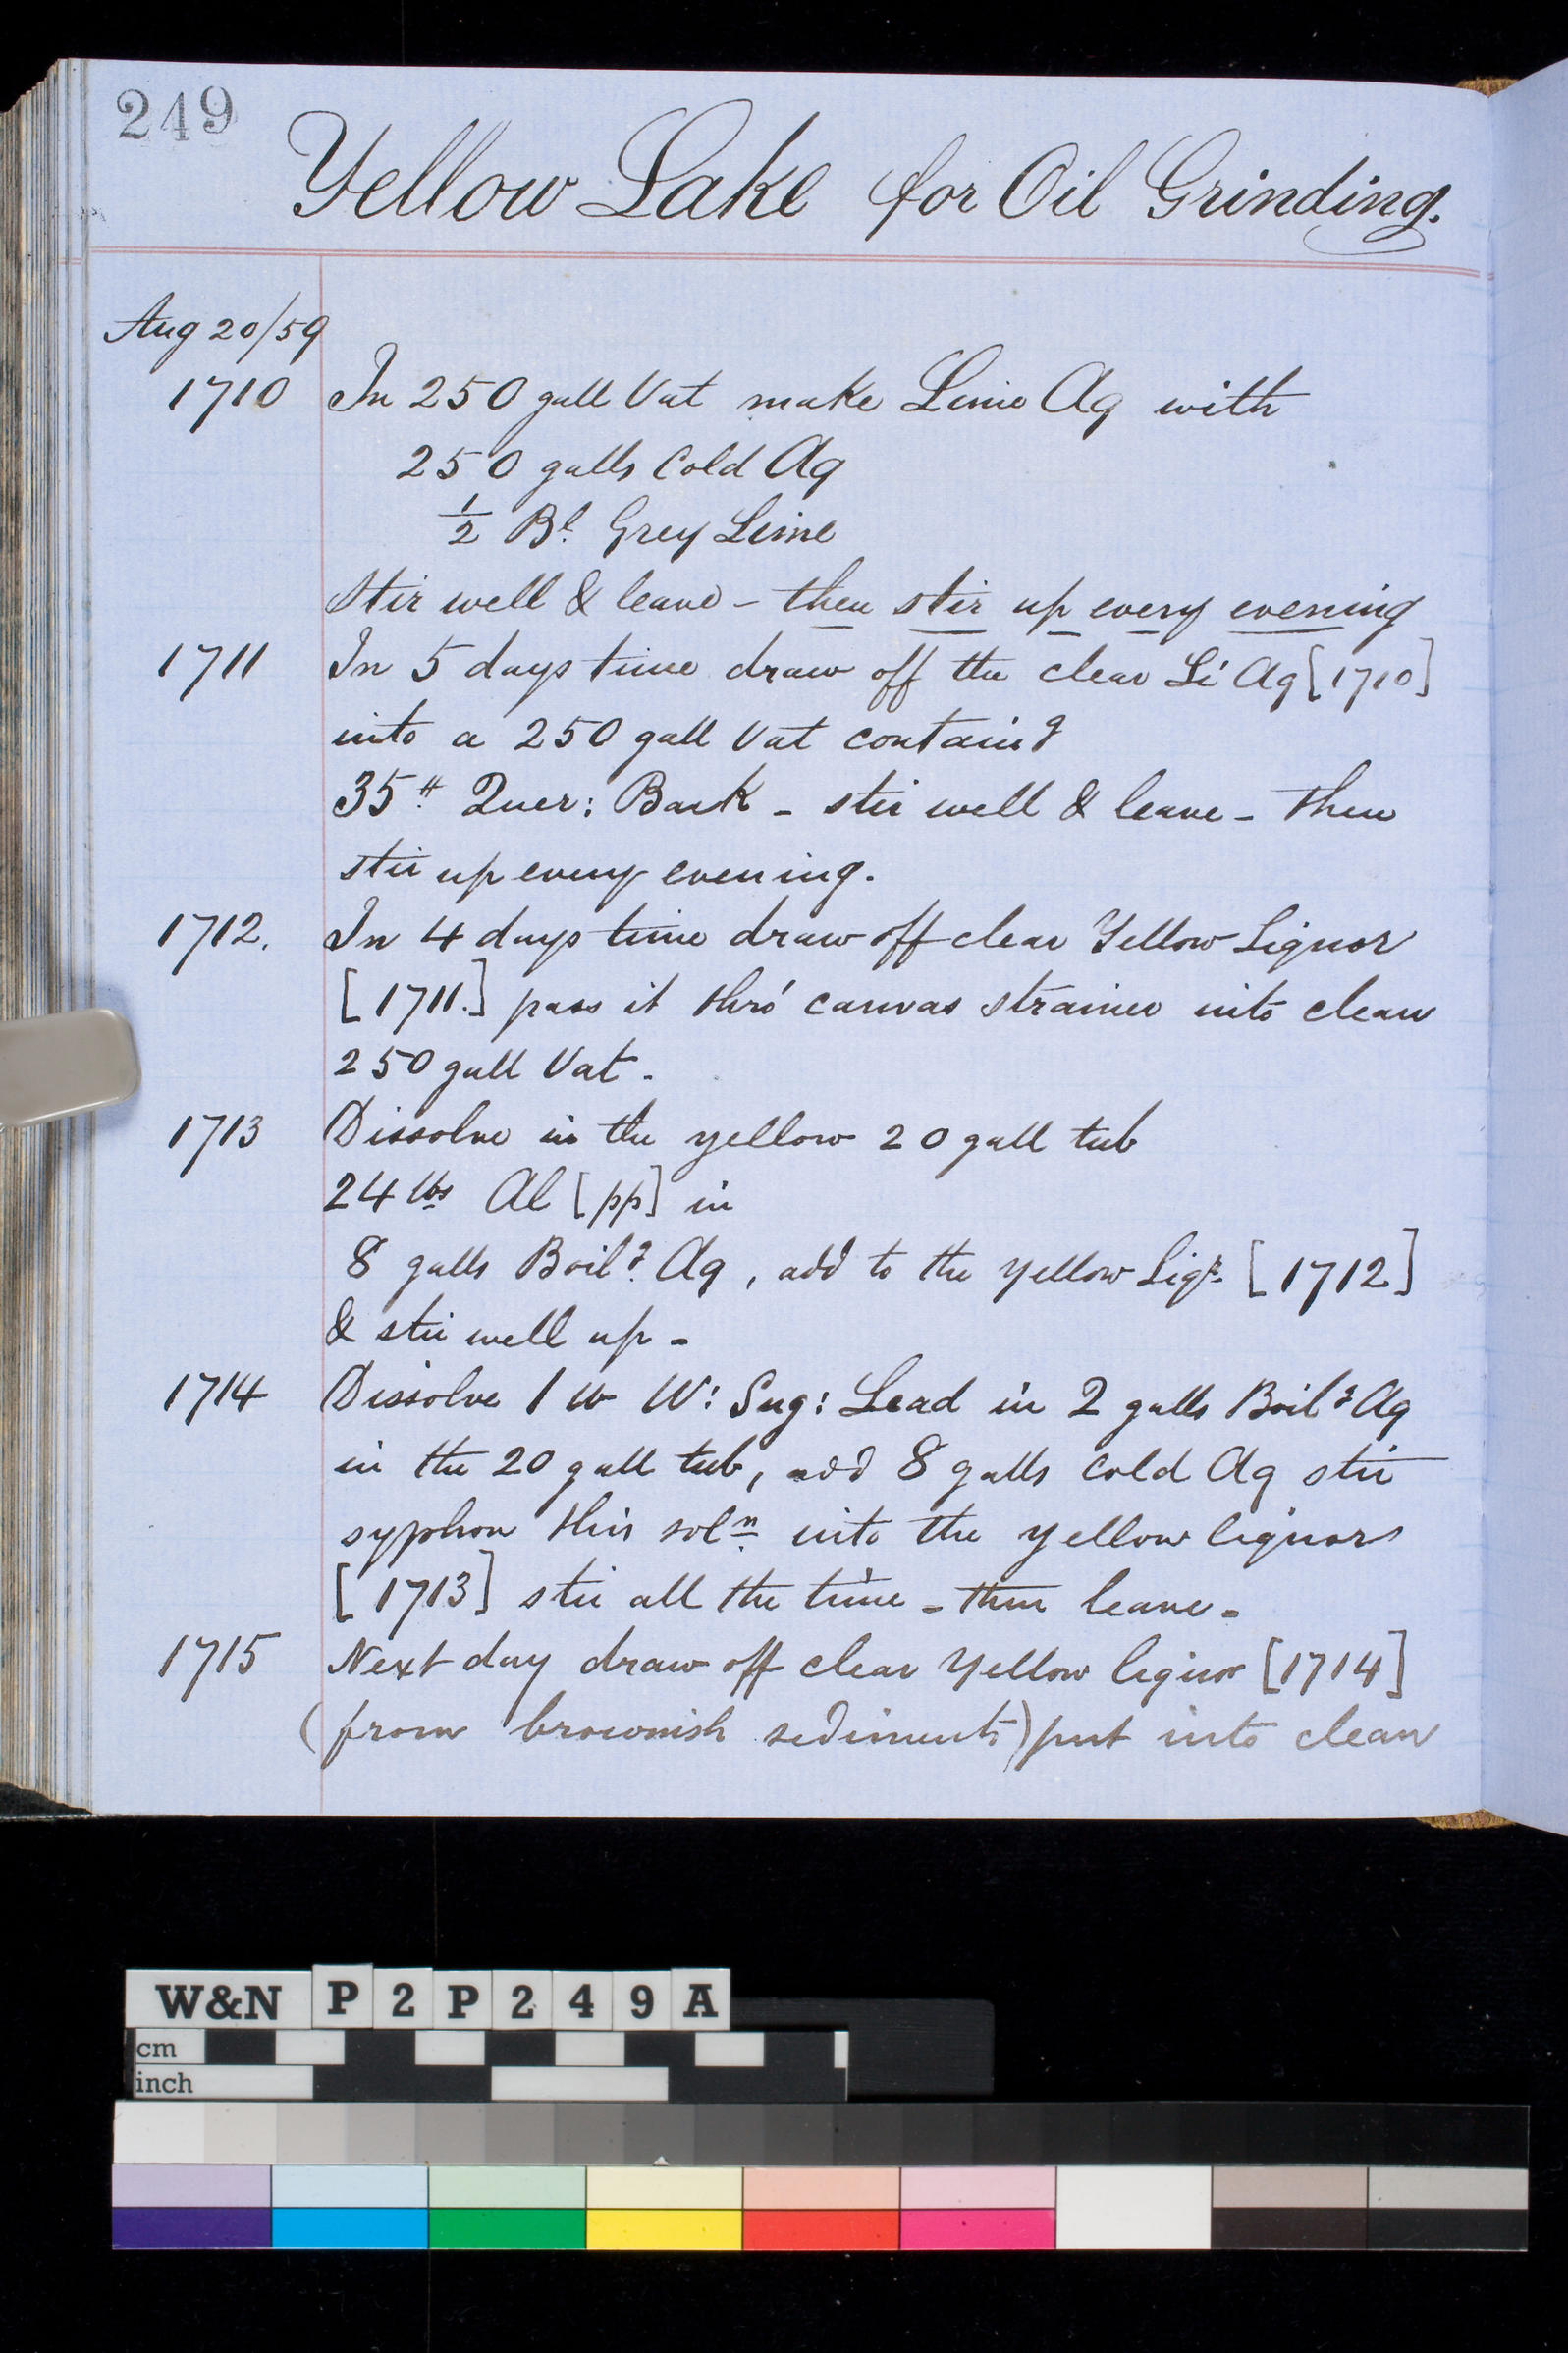 249
Yellow Lake for Oil Grinding.
Aug 20/59
1710 In 250 gall Vat make Lime Aq with
250 galls Cold Aq
1/2 Bl. Grey Lime
Stir well & leave - then stir up every evening
1711 In 5 days time draw off the clear Li Aq [1710]
into a 250 gall Vat containg
35 # Quer: Bark - stir well & leave - then
stir up every evening.
1712. In 4 days time draw off clear Yellow Liquor
[1711.] pass it thro' canvas strainer into clean
250 gall Vat.
1713 Dissolve in the yellow 20 gall tub
24 lbs Al [pp] in
8 galls Boilg. Aq, add to the yellow Liqr. [1712]
& stir well up -
1714 Dissolve 1 lb W: Sug: Lead in 2 galls Boilg Aq
in the 20 gall tub, add 8 galls cold Aq stir
syphon this soln. into the yellow liquors
[1713] stir all the time - then leave -
1715 Next day draw off clear Yellow liquor [1714]
(from brownish sediment) put into clean
W&N P2P249A
cm
inch